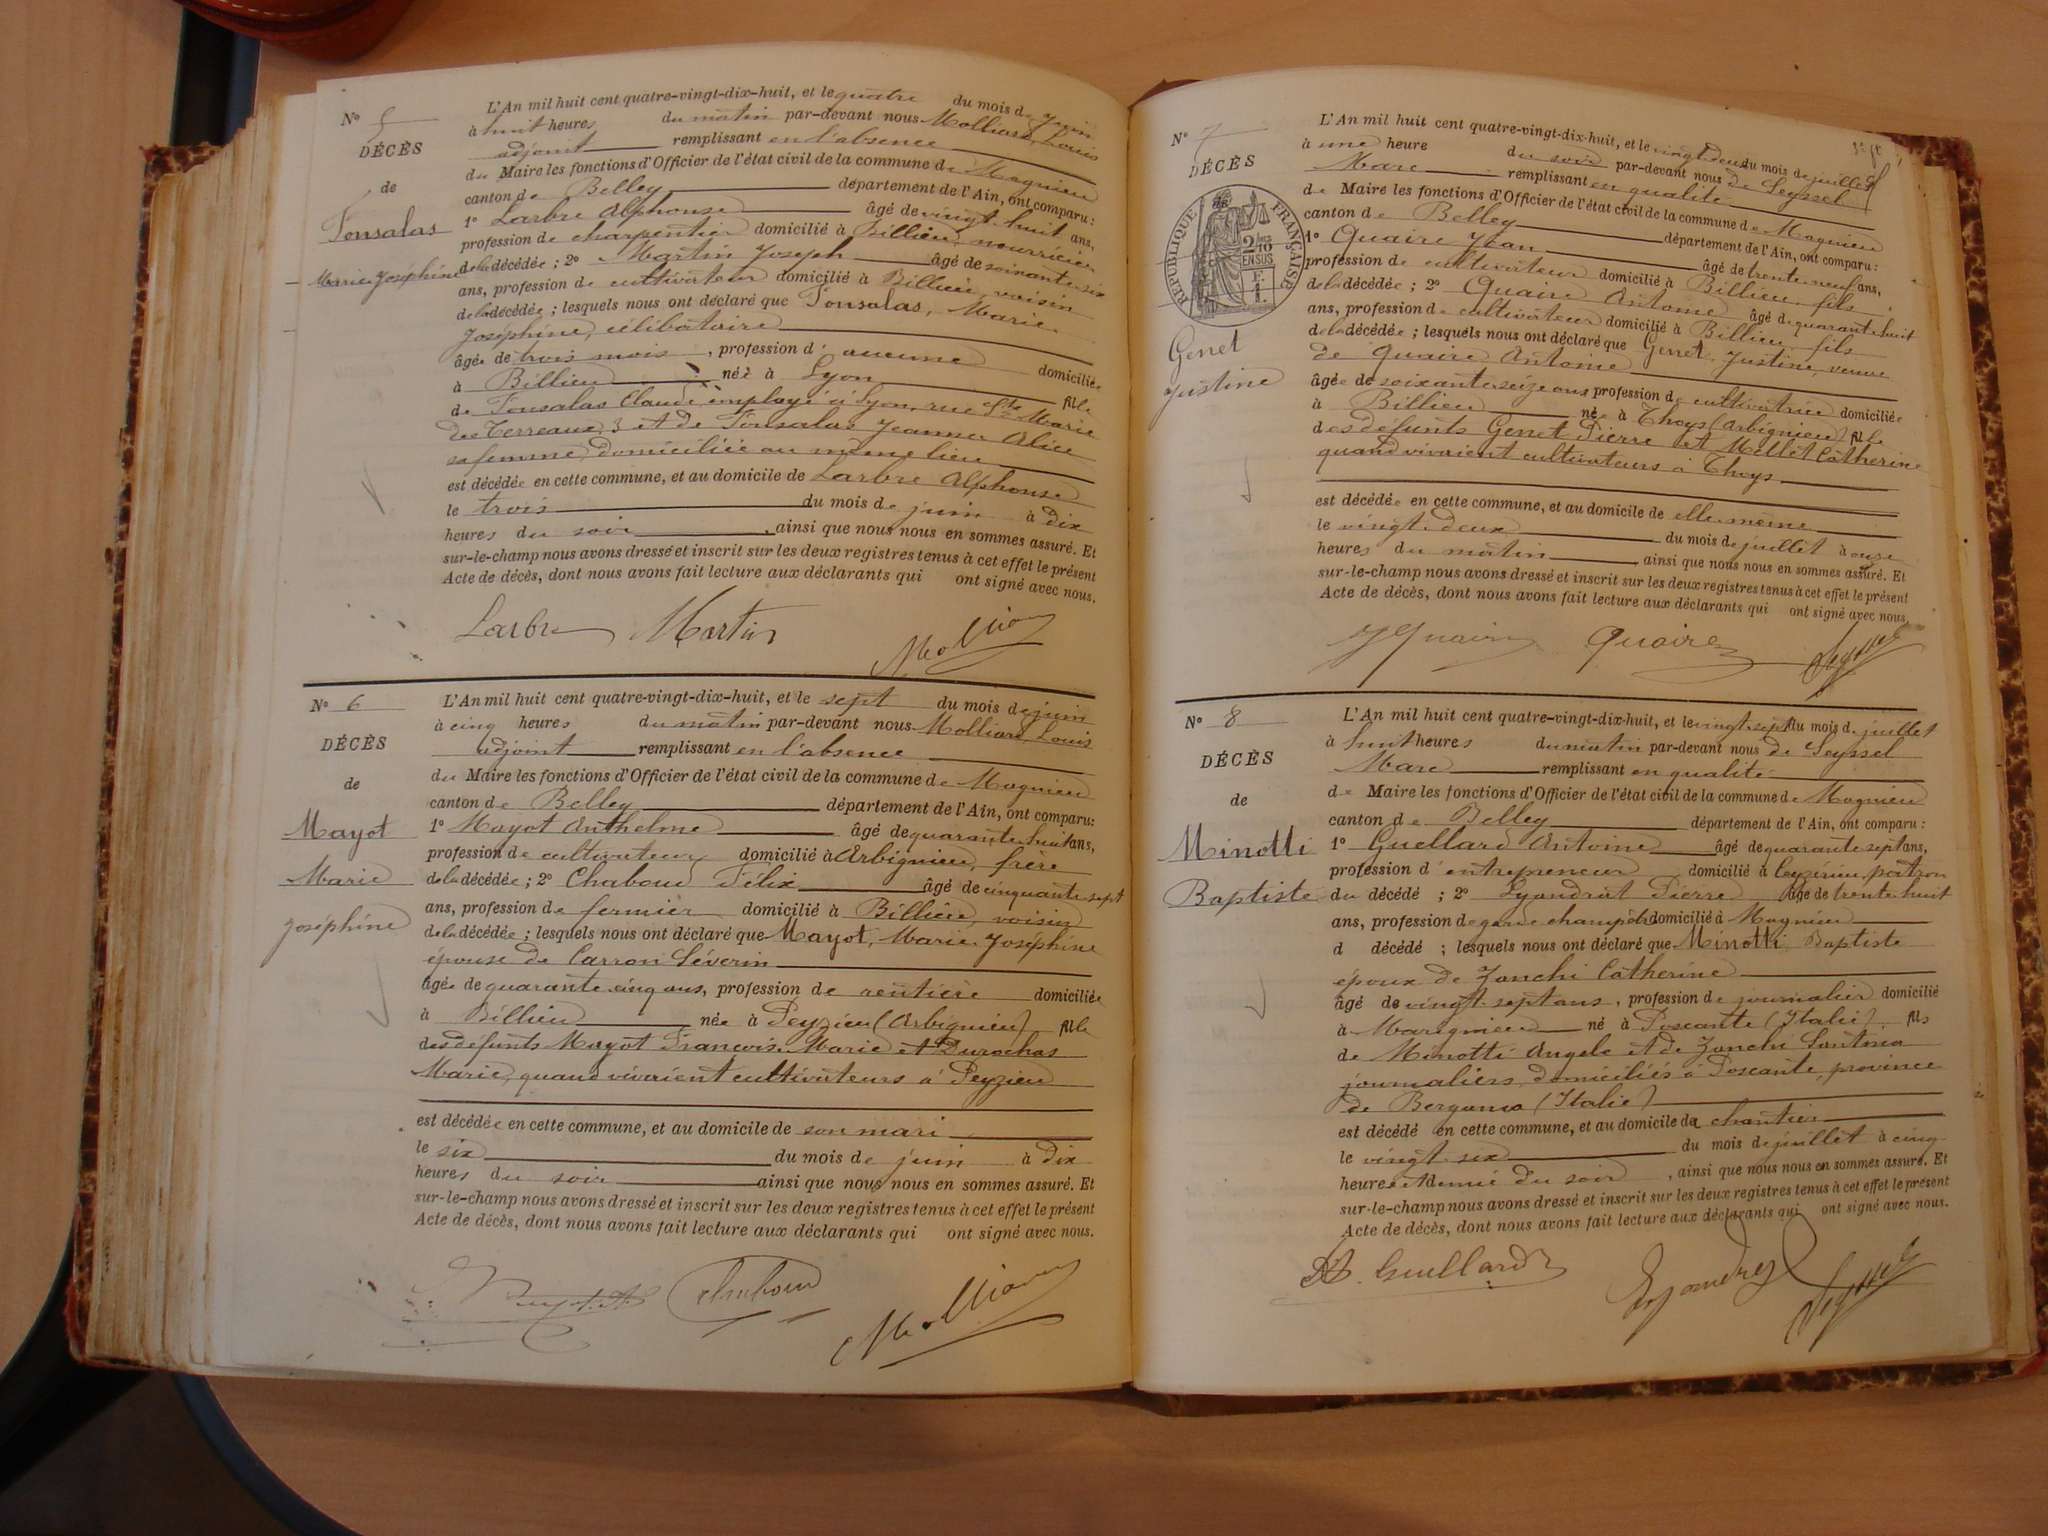 N° 5
DÉCÈS
de
Fonsalas
Marie Joséphine
L'An mil huit cent quatre-vingt-dix-huit, et le quatre du mois de juin
à huit heures du matin par-devant nous Molliard, Louis
adjoint remplissant en l'absence
du Maire les fonctions d'Officier de l'état civil de la commune de Magnieu
canton de Belley département de l'Ain, ont comparu :
1° Larbre Alphonse âgé de vingt-huit ans,
profession de charpentier domicilié à Billieu, nourricier
de la décédée ; 2° Martin Joseph âgé de soixante six
ans, profession de cultivateur domicilié à Billieu, voisin
de la décédée ; lesquels nous ont déclaré que Fonsalas, Marie
Joséphine, célibataire
âgée de trois mois, profession d' aucune domiciliée
à Billieu née à Lyon fille
de Fonsalas Claude employé à Lyon, rue Ste Marie
des Terreaux, 3 et de Fonsalas Jeanne Alice
sa femme, domiciliée au même lieu
est décédée en cette commune, et au domicile de Larbre Alphonse
le trois du mois de juin à dix
heures du soir, ainsi que nous nous en sommes assuré. Et
sur-le-champ nous avons dressé et inscrit sur les deux registres tenus à cet effet le présent
Acte de décès, dont nous avons fait lecture aux déclarants qui ont signé avec nous.
Larbre Martin Molliard
N° 6
DÉCÈS
de
Mayot
Marie
Joséphine
L'An mil huit cent quatre-vingt-dix-huit, et le sept du mois de juin
à cinq heures du matin par-devant nous Molliard, Louis
adjoint remplissant en l'absence
du Maire les fonctions d'Officier de l'état civil de la commune de Magnieu
canton de Belley département de l'Ain, ont comparu :
1° Mayot Anthelme âgé de quarante huit ans,
profession de cultivateur domicilié à Arbignieu, frère
de la décédée ; 2° Chaboud Félix âgé de cinquante-sept
ans, profession de fermier domicilié à Billieu, voisin
de la décédée ; lesquels nous ont déclaré que Mayot, Marie Joséphine
épouse de Carron Séverin
âgée de quarante cinq ans, profession de rentière domiciliée
à Billieu née à Peyzieu (Arbignieu), fille
des défunts Mayot François-Marie et Durochas
Marie, quand vivaient cultivateurs à Peyzieu
est décédée en cette commune, et au domicile de son mari
le six du mois de juin à dix
heures du soir ainsi que nous nous en sommes assuré. Et
sur-le-champ nous avons dressé et inscrit sur les deux registres tenus à cet effet le présent
Acte de décès, dont nous avons fait lecture aux déclarants qui ont signé avec nous.
Chaboud Molliard
N° 7
DÉCÈS
RÉPUBLIQUE FRANÇAISE
2/10 EN SUS
Genet
Justine
L'An mil huit cent quatre-vingt-dix-huit, et le vingt-deux du mois de juillet
à une heure du soir par-devant nous de Seyssel
Marc remplissant en qualité
de Maire les fonctions d'Officier de l'état civil de la commune de Magnieu
canton de Belley département de l'Ain, ont comparu :
1° Quaire Jean âgé de trente-neuf ans,
profession de cultivateur domicilié à Billieu, fils
de la décédée ; 2° Quaire Antoine âgé de quarante huit
ans, profession de cultivateur domicilié à Billieu fils
de la décédée ; lesquels nous ont déclaré que Genet, Justine, veuve
de Quaire Antoine
âgée de soixante seize ans profession de cultivatrice domiciliée
à Billieu née à Thoys (Arbignieu) fille
des défunts Genet Pierre et Mellet Catherine
quand vivaient cultivateurs à Thoys
est décédée en cette commune, et au domicile de elle-même
le vingt-deux du mois de juillet à onze
heures du matin, ainsi que nous nous en sommes assuré. Et
sur-le-champ nous avons dressé et inscrit sur les deux registres tenus à cet effet le présent
Acte de décès, dont nous avons fait lecture aux déclarants qui ont signé avec nous.
J Quaire Quaire Seyssel
N° 8
DÉCÈS
de
Minotti
Baptiste
L'An mil huit cent quatre-vingt-dix-huit, et le vingt-sept du mois de juillet
à huit heures du matin par-devant nous de Seyssel
Marc remplissant en qualité
de Maire les fonctions d'Officier de l'état civil de la commune de Magnieu
canton de Belley département de l'Ain, ont comparu :
1° Guellard Antoine âgé de quarante sept ans,
profession d'entrepreneur domicilié à Ceyzérieu, patron
du décédé ; 2° Lyandrat Pierre âgé de trente huit
ans, profession de garde champêtre domicilié à Magnieu
d décédé ; lesquels nous ont déclaré que Minotti Baptiste
époux de Zanchi Catherine
âgé de vingt sept ans, profession de journalier domicilié
à Marignieu né à Poscante (Italie), fils
de Minotti Angele et de Zanchi Santina
journaliers, domiciliés à Poscante, province
de Bergama (Italie)
est décédé en cette commune, et au domicile du chantier
le vingt-six du mois de juillet à cinq
heures et demie du soir, ainsi que nous nous en sommes assuré. Et
sur-le-champ nous avons dressé et inscrit sur les deux registres tenus à cet effet le présent
Acte de décès, dont nous avons fait lecture aux déclarants qui ont signé avec nous.
A. Guellard Seyssel